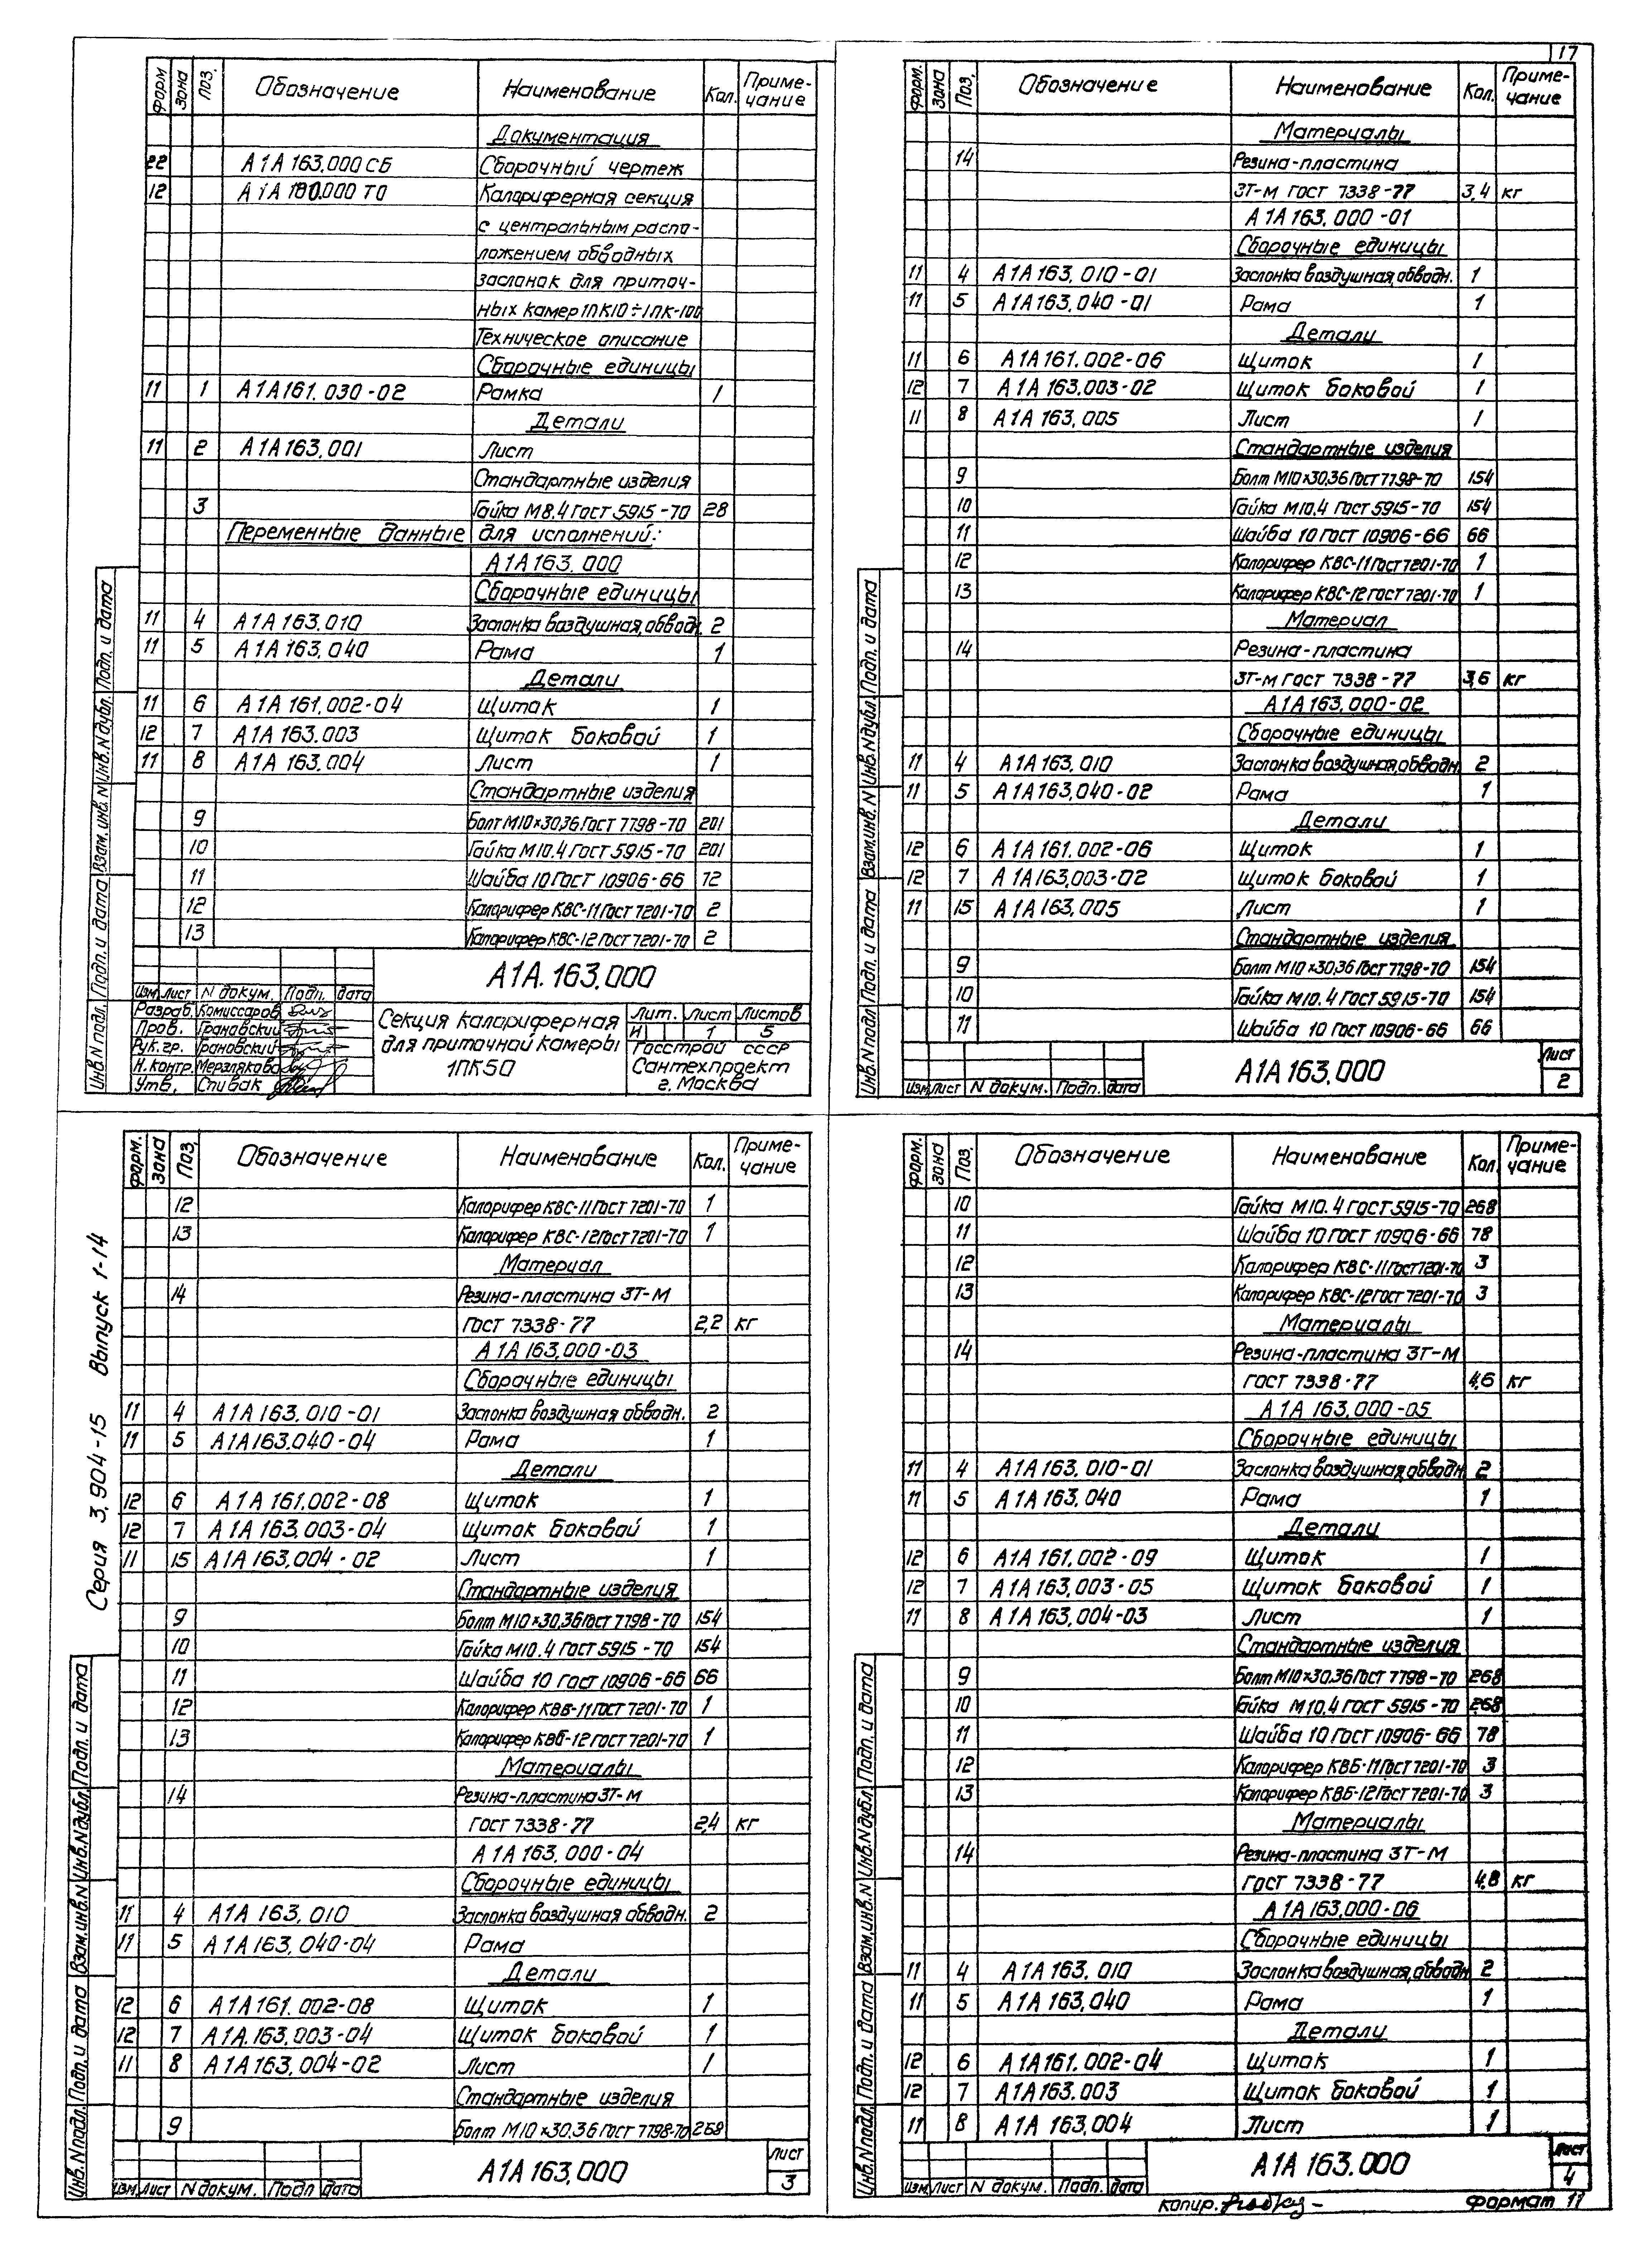 17
Форм. Зона Поз. Обозначение Наименование Кол. Приме-
чание
Документация
22 А1А 163.000 СБ Сборочный чертеж
12 ТО Калориферная секция
с центральным распо-
ложением обводных
заслонок для приточ-
ных камер 1ПК10÷1ПК-100
Техническое описание
Сборочные единицы
11 1 А1А161.030-02 Рамка 1
Детали
11 2 А1А163.001 Лист
Стандартные изделия
3 Гайка М8.4 ГОСТ 5915-70 28
Переменные данные для исполнений:
А1А163.000
Сборочные единицы
11 4 А1А 163.010 Заслонка воздушная,обводн. 2
11 5 А1А 163.040 Рама 1
Детали
11 6 А1А 161.002-04 Щиток 1
12 7 А1А 163.003 Щиток боковой 1
11 8 А1А 163.004 Лист 1
Стандартные изделия
9 Болт М10×30,36 ГОСТ 7798-70 201
10 Гайка М10.4 ГОСТ 5915-70 201
11 Шайба 10 ГОСТ 10906-66 72
12 Калорифер КВС-11 ГОСТ 7201-70 2
13 Калорифер КВС-12 ГОСТ 7201-70 2
А1А.163.000
Изм. Лист N докум. Подп. дата
Разраб. Комиссаров
Пров. Грановский
Рук. гр. Грановский
Н.контр. Мерзлякова
Утв. Спивак
Секция калориферная
для приточной камеры
1ПК50
Лит. Лист Листов
И 1 5
Госстрой СССР
Сантехпроект
г. Москва
Инв.N подл. Подп. и дата Взам.инв.N Инв.N дубл. Подп. и дата
Форм. Зона Поз. Обозначение Наименование Кол. Приме-
чание
Материалы
14 Резина-пластина
3Т-м ГОСТ 7338-77 3,4 кг
А1А163.000-01
Сборочные единицы
11 4 А1А163.010-01 Заслонка воздушная,обводн. 1
11 5 А1А163.040-01 Рама 1
Детали
11 6 А1А161.002-06 Щиток 1
12 7 А1А163.003-02 Щиток боковой 1
11 8 А1А163.005 Лист 1
Стандартные изделия
9 Болт М10×30,36 ГОСТ 7798-70 154
10 Гайка М10.4 ГОСТ 5915-70 154
11 Шайба 10 ГОСТ 10906-66 66
12 Калорифер КВС-11 ГОСТ 7201-70 1
13 Калорифер КВС-12 ГОСТ 7201-70 1
Материал
14 Резина-пластина
3Т-м ГОСТ 7338-77 3,6 кг
А1А163.000-02
Сборочные единицы
11 4 А1А163.010 Заслонка воздушная,обводн. 2
11 5 А1А163.040-02 Рама 1
Детали
12 6 А1А161.002-06 Щиток 1
12 7 А1А163.003-02 Щиток боковой 1
11 15 А1А163.005 Лист 1
Стандартные изделия
9 Болт М10×30,36 ГОСТ 7798-70 154
10 Гайка М10.4 ГОСТ 5915-70 154
11 Шайба 10 ГОСТ 10906-66 66
Изм. Лист N докум. Подп. дата А1А163.000 Лист
2
Инв.N подл Подп. и дата Взам.инв.N Инв.N дубл. Подп. и дата
Серия 3.904-15 Выпуск 1-14
Форм. Зона Поз. Обозначение Наименование Кол. Приме-
чание
12 Калорифер КВС-11 ГОСТ 7201-70 1
13 Калорифер КВС-12 ГОСТ 7201-70 1
Материал
14 Резина-пластина 3Т-М
ГОСТ 7338-77 2,2 кг
А1А163.000-03
Сборочные единицы
11 4 А1А163.010-01 Заслонка воздушная обводн. 2
11 5 А1А163.040-04 Рама 1
Детали
12 6 А1А161.002-08 Щиток 1
12 7 А1А163.003-04 Щиток боковой 1
11 15 А1А163.004-02 Лист 1
Стандартные изделия
9 Болт М10×30,36 ГОСТ 7798-70 154
10 Гайка М10.4 ГОСТ 5915-70 154
11 Шайба 10 ГОСТ 10906-66 66
12 Калорифер КВБ-11 ГОСТ 7201-70 1
13 Калорифер КВБ-12 ГОСТ 7201-70 1
Материалы
14 Резина-пластина 3Т-М
ГОСТ 7338-77 2,4 кг
А1А163.000-04
Сборочные единицы
11 4 А1А 163.010 Заслонка воздушная обводн. 2
11 5 А1А 163.040-04 Рама
Детали
12 6 А1А161.002-08 Щиток 1
12 7 А1А.163.003-04 Щиток боковой 1
11 8 А1А163.004-02 Лист 1
Стандартные изделия
9 Болт М10×30,36 ГОСТ 7798-70 268
Изм. Лист N докум. Подп дата А1А163.000 Лист
3
Инв.N подл. Подп. и дата Взам.инв.N Инв.N дубл. Подп. и дата
Форм. Зона Поз. Обозначение Наименование Кол. Приме-
чание
10 Гайка М10.4 ГОСТ 5915-70 268
11 Шайба 10 ГОСТ 10906-66 78
12 Калорифер КВС-11 ГОСТ 7201-70 3
13 Калорифер КВС-12 ГОСТ 7201-70 3
Материалы
14 Резина-пластина 3Т-М
ГОСТ 7338-77 4,6 кг
А1А 163.000-05
Сборочные единицы
11 4 А1А163.010-01 Заслонка воздушная,обводн 2
11 5 А1А163.040 Рама 1
Детали
12 6 А1А161.002-09 Щиток 1
12 7 А1А163.003-05 Щиток боковой 1
11 8 А1А163.004-03 Лист 1
Стандартные изделия
9 Болт М10×30,36 ГОСТ 7798-70 268
10 Гайка М10.4 ГОСТ 5915-70 268
11 Шайба 10 ГОСТ 10906-66 78
12 Калорифер КВБ-11 ГОСТ 7201-70 3
13 Калорифер КВБ-12 ГОСТ 7201-70 3
Материалы
14 Резина-пластина 3Т-М
ГОСТ 7338-77 4,8 кг
А1А163.000-06
Сборочные единицы
11 4 А1А163.010 Заслонка воздушная,обводн 2
11 5 А1А163.040 Рама 1
Детали
12 6 А1А161.002-04 Щиток 1
12 7 А1А163.003 Щиток боковой 1
11 8 А1А163.004 Лист 1
Изм. Лист N докум. Подп. дата А1А163.000 Лист
4
Инв.N подл. Подп. и дата Взам.инв.N Инв.N дубл. Подп. и дата
копир. формат 11